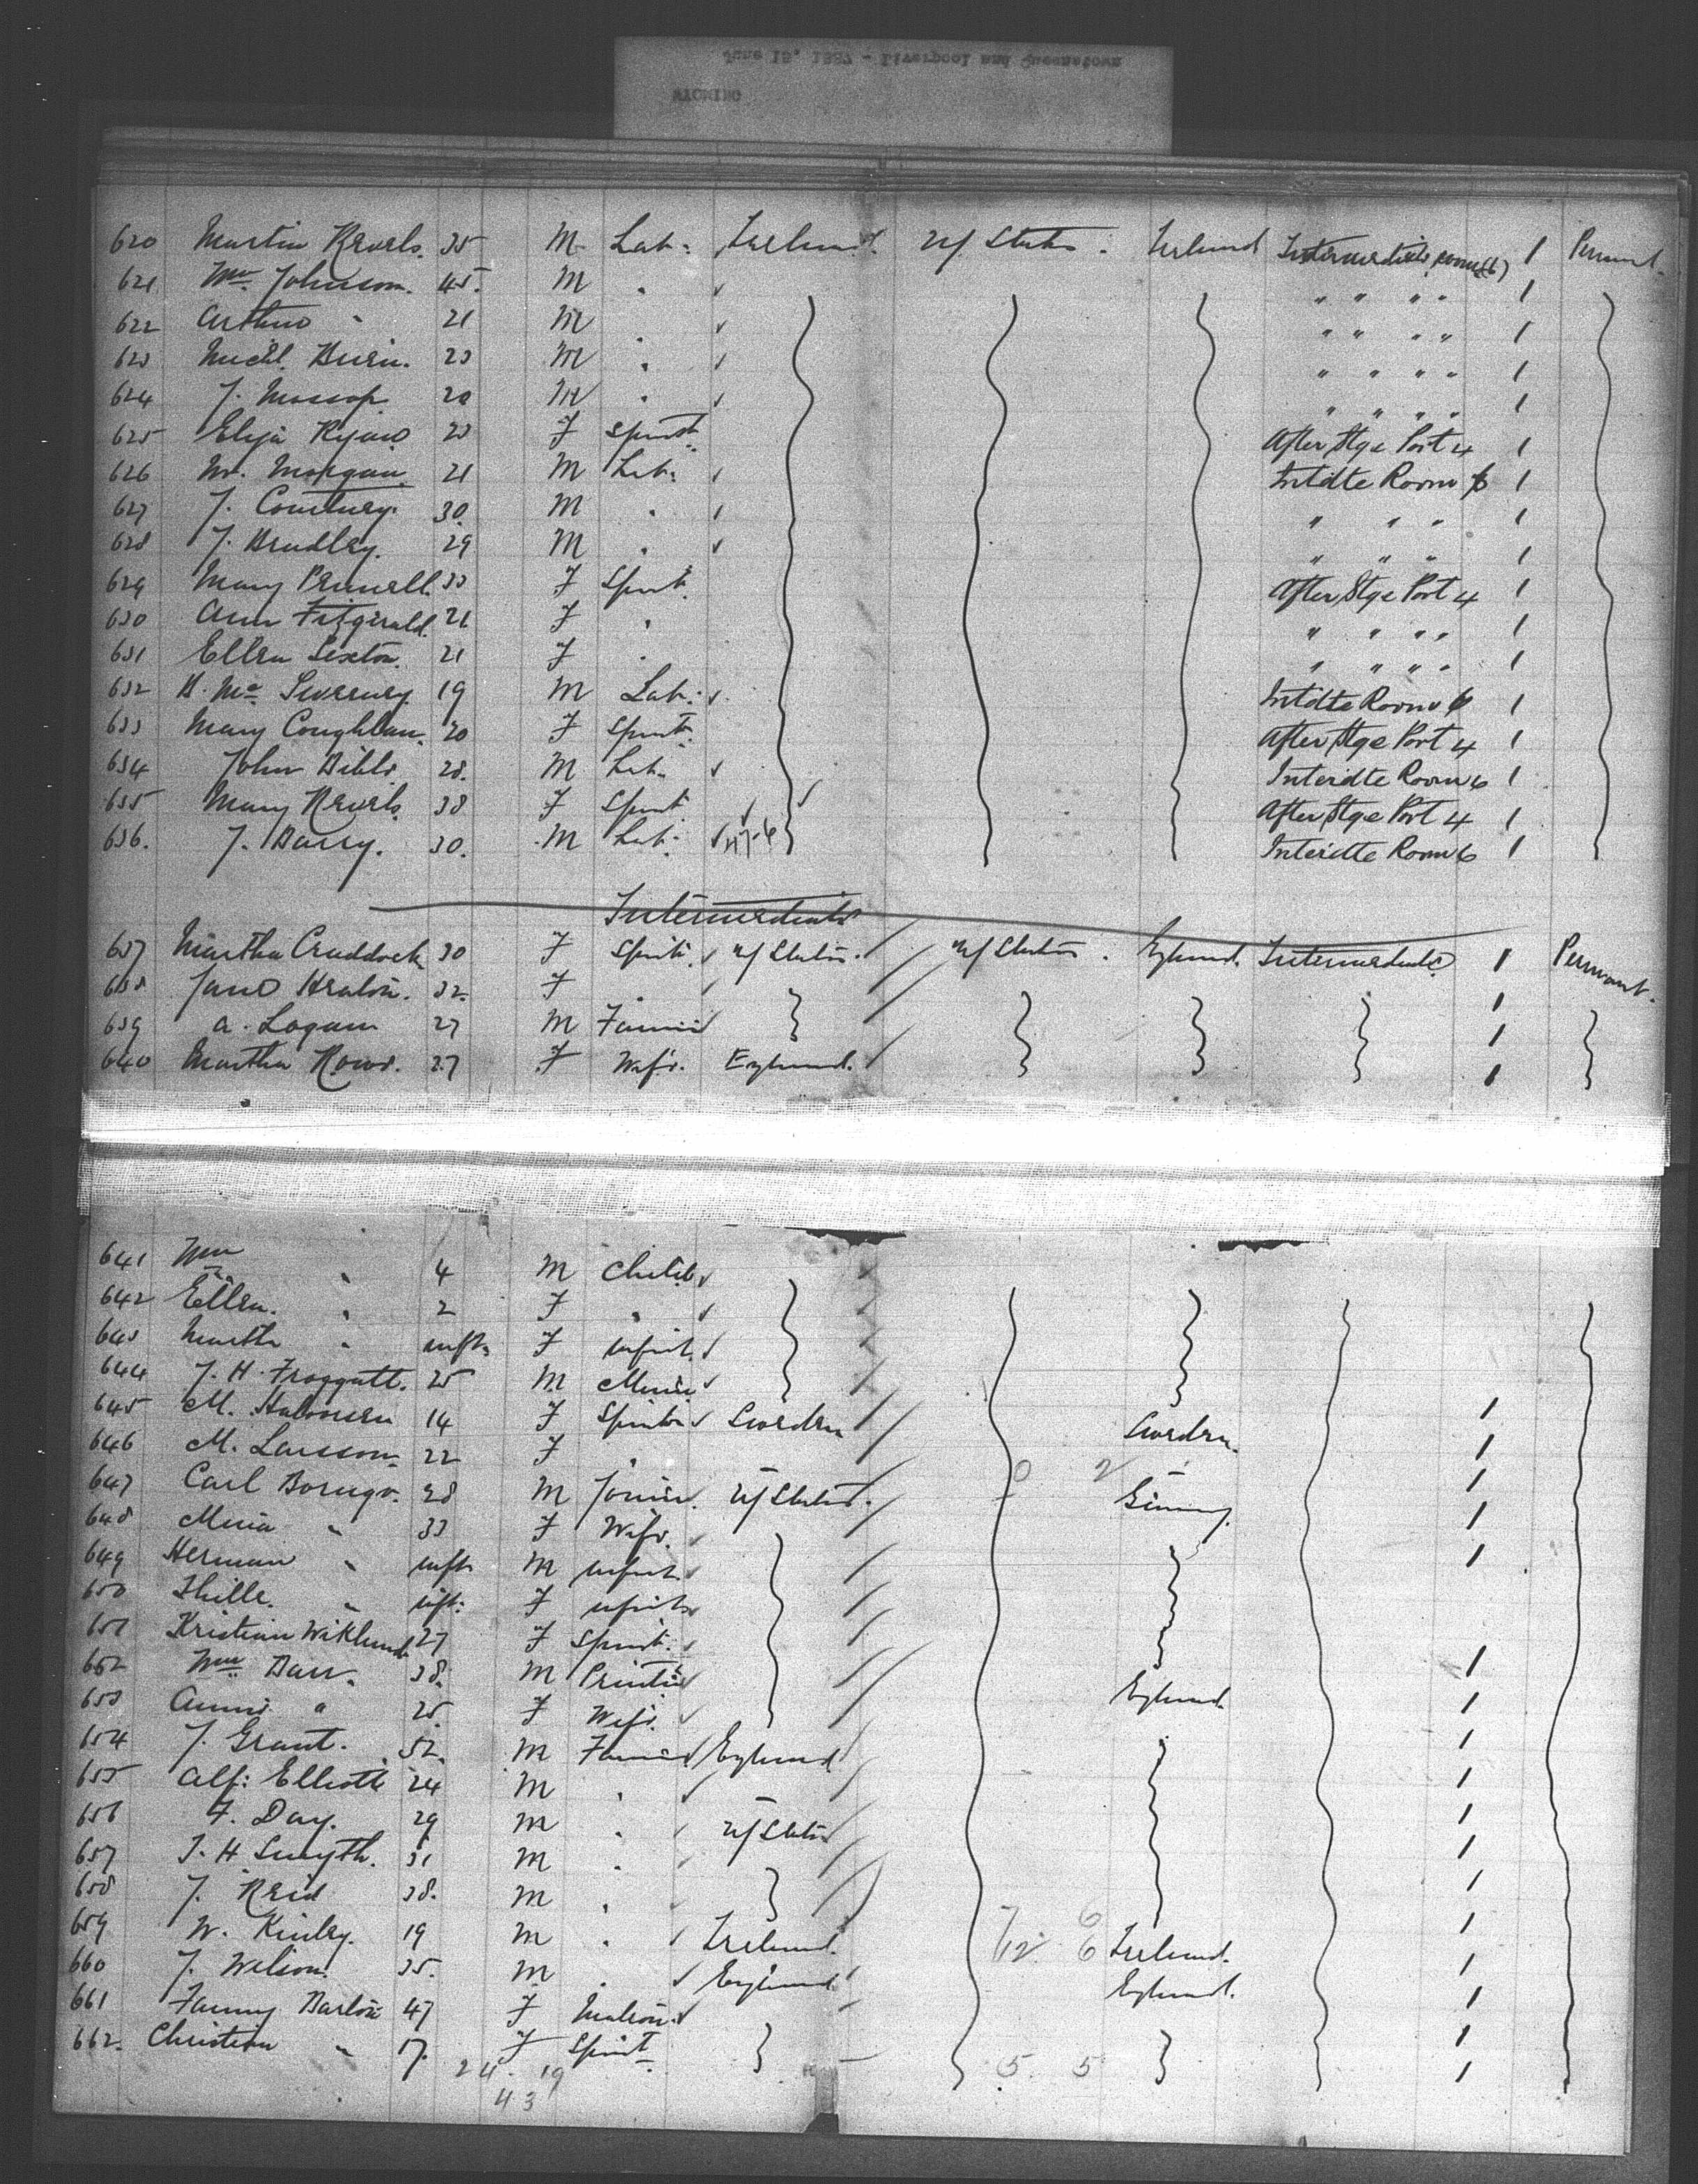 June 15, 1887 - Liverpool and Queenstown
WYOMING
620 Martin Revels. 35 M Lab: Ireland. U/ States. Ireland Intermediate, room (6) 1 Permant.
621 Wm Johnson. 45. M " " " " 1
622 Arthur " 21 M " " " " 1
623 Michl. 23 M " " " " 1
624 J. Mossop 20 M " " " " 1
625 Eliza Ryan 23 F Spinst. After Stge Port 4 1
626 W. Morgan. 21 M Lab: Intdte Room 6 1
627 J. Courtney. 30. M " " " 1
628 J. Bradley. 29 M " " " 1
629 Mary 33 F Spinst. After Stge Port 4 1
630 Ann Fitzgerald. 21 F " " " " " 1
631 Ellen Sexton. 21 F " " " " 1
632 Mc Sweeney. 19 M Lab: Intdte Room 6 1
633 Mary Coughlan. 20 F Spinst. After Stge Port 4 1
634 John 28. M Lab. Interdte Room 6 1
635 Mary Revels. 38 F Spinst After Stge Port 4 1
636. J. Barry. 30. M Lab: Interdte Room 6 1
Intermediate
637 Martha Craddock 30 F Spinst. U/ States. U/ States. England. Intermediate 1 Permant.
638 Jane Heaton. 32. F 1
639 A. Logan 27 M Farmer 1
640 Martha Rowe. 27 F Wife. England. 1
641 Wm " 4 M Child
642 Ellen. " 2 F "
643 Martha " inft. F infant.
644 J. H. Froggatt. 25 M
645 M. Halvorsen 14 F Spinster Sweden Sweden. 1
646 M. Larsson. 22 F " 1
647 Carl 28 M Joiner. U/ States. Germany. 1
648 " 33 F Wife. 1
649 Herman " inft. M infant. 1
650 " inft. F infant
651 Kristian Wiklund 27 F Spinst.
652 Wm Barr. 38. M Printer England. 1
653 Annie " 25. F Wife. 1
654 J. Grant. 52. M Farmer England 1
655 Alf: Elliott 24 M " 1
656 F. Day. 29 M " U/ States 1
657 J. H Smyth. 31 M " 1
658 J. Reid 38. M " 1
659 W. Kinley. 19 M " Ireland. Ireland. 1
660 J. Wilson. 35. M " England. England. 1
661 Fanny Barton 47 F Matron. 1
662. Christian " 17. F Spinst. 1
24. 19 5. 5
43